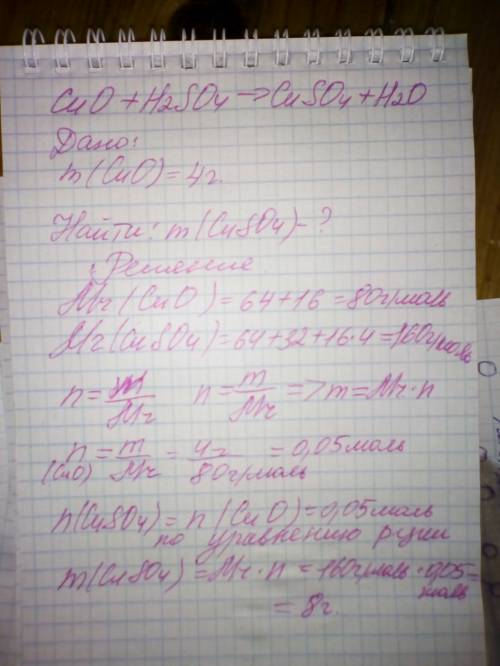 CuO + H2SO4 -> CuSO4 + H2O
Дано:
m(CuO) = 4г.
Найти: m(CuSO4) - ?
Решение
Mr(CuO) = 64+16 = 80г/моль
Mr(CuSO4) = 64+32+16·4 = 160г/моль
n = m/Mr n = m/Mr => m = Mr·n
n(CuO) = m/Mr = 4г/80г/моль = 0,05моль
n(CuSO4) = n(CuO) = 0,05моль
по уравнению р-ции
m(CuSO4) = Mr·n = 160г/моль · 0,05 моль =
= 8г.